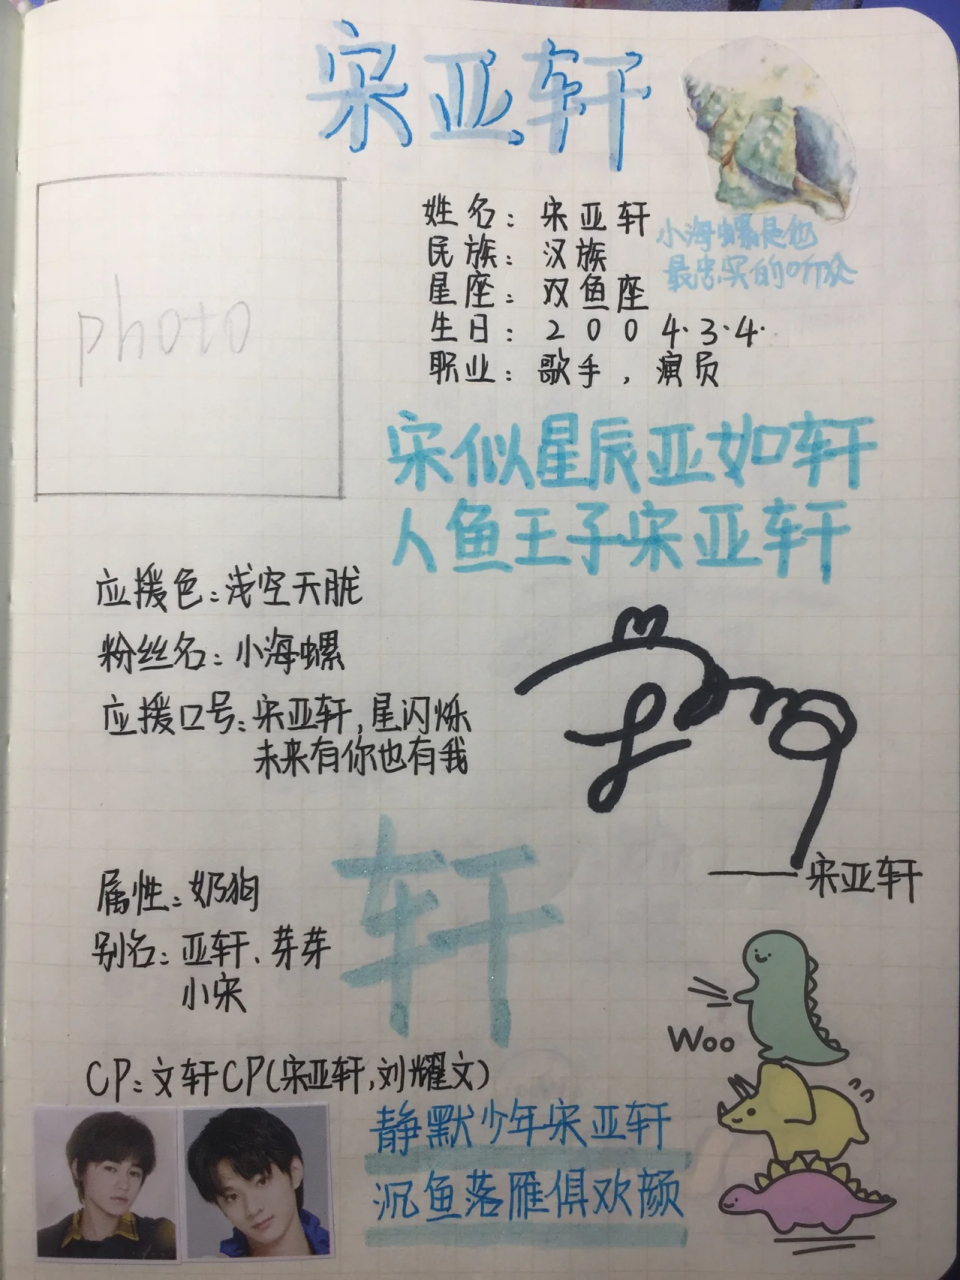 宋亚轩
姓名：宋亚轩
民族：汉族
星座：双鱼座
生日：2004.3.4.
职业：歌手，演员
小海螺是他
最忠实的听众
photo
宋似星辰亚如轩
人鱼王子宋亚轩
应援色：浅空天胧
粉丝名：小海螺
应援口号：宋亚轩，星闪烁
未来有你也有我
——宋亚轩
属性：奶狗
别名：亚轩、芽芽
小宋
轩
Woo
CP：文轩CP(宋亚轩，刘耀文)
静默少年宋亚轩
沉鱼落雁俱欢颜